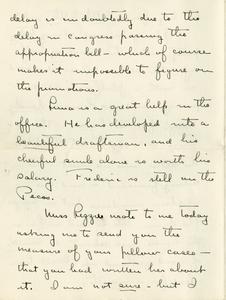 delay is undoubtedly due to the
delay in congress passing the
appropriation bill - which of course
makes it impossible to figure on
the promotions.
is a great help in the
office. He has developed into a
beautiful draftsman, and his
cheerful smile alone is worth his
salary. Frederic is still on the
Pecos.
Miss wrote to me today
asking me to send you the
measure of your pillow cases -
that you had written her about
it. I am not sure - but I